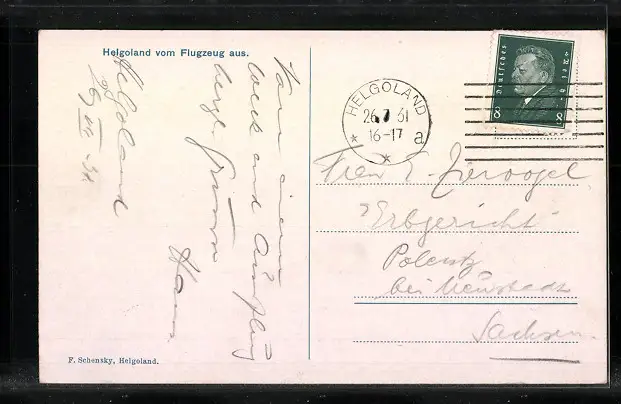 Helgoland vom Flugzeug aus.
Helgoland
26 VII 31
Von einem
Week end Ausflug
herzl. Grüsse
Hans
F. Schensky, Helgoland.
HELGOLAND
26.7 31
16-17 a
Deutsches Reich
8 8
E.
"Erbgericht"
Polenz
bei Neustadt
Sachsen.